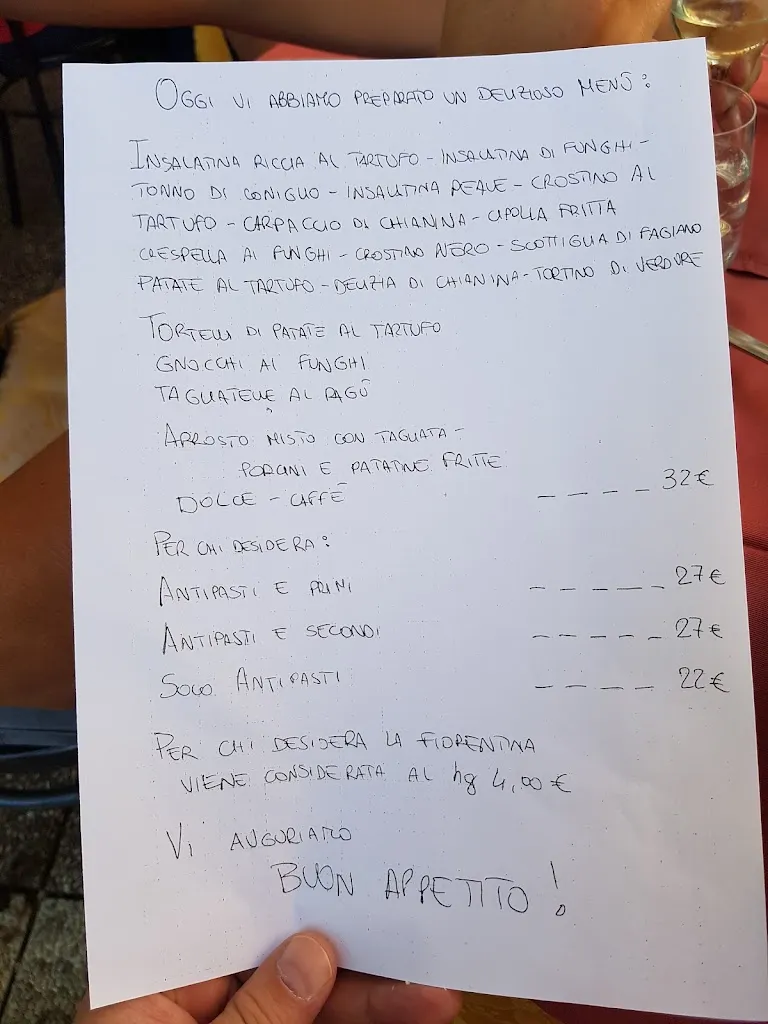 OGGI VI ABBIAMO PREPARATO UN DELIZIOSO MENÙ:
INSALATINA RICCIA AL TARTUFO - INSALATINA DI FUNGHI -
TONNO DI CONIGLIO - INSALATINA REALE - CROSTINO AL
TARTUFO - CARPACCIO DI CHIANINA - CIPOLLA FRITTA
CRESPELLA AI FUNGHI - CROSTINO NERO - SCOTTIGLIA DI FAGIANO
PATATE AL TARTUFO - DELIZIA DI CHIANINA - TORTINO DI VERDURE
TORTELLI DI PATATE AL TARTUFO
GNOCCHI AI FUNGHI
TAGLIATELLE AL RAGÙ
ARROSTO MISTO CON TAGLIATA -
PORCINI E PATATINE FRITTE
DOLCE - CAFFÈ _ _ _ _ 32€
PER CHI DESIDERA:
ANTIPASTI E PRIMI _ _ _ _ _ 27€
ANTIPASTI E SECONDI _ _ _ _ _ 27€
SOLO ANTIPASTI _ _ _ _ 22€
PER CHI DESIDERA LA FIORENTINA
VIENE CONSIDERATA AL hg 4,00 €
VI AUGURIAMO
BUON APPETITO!